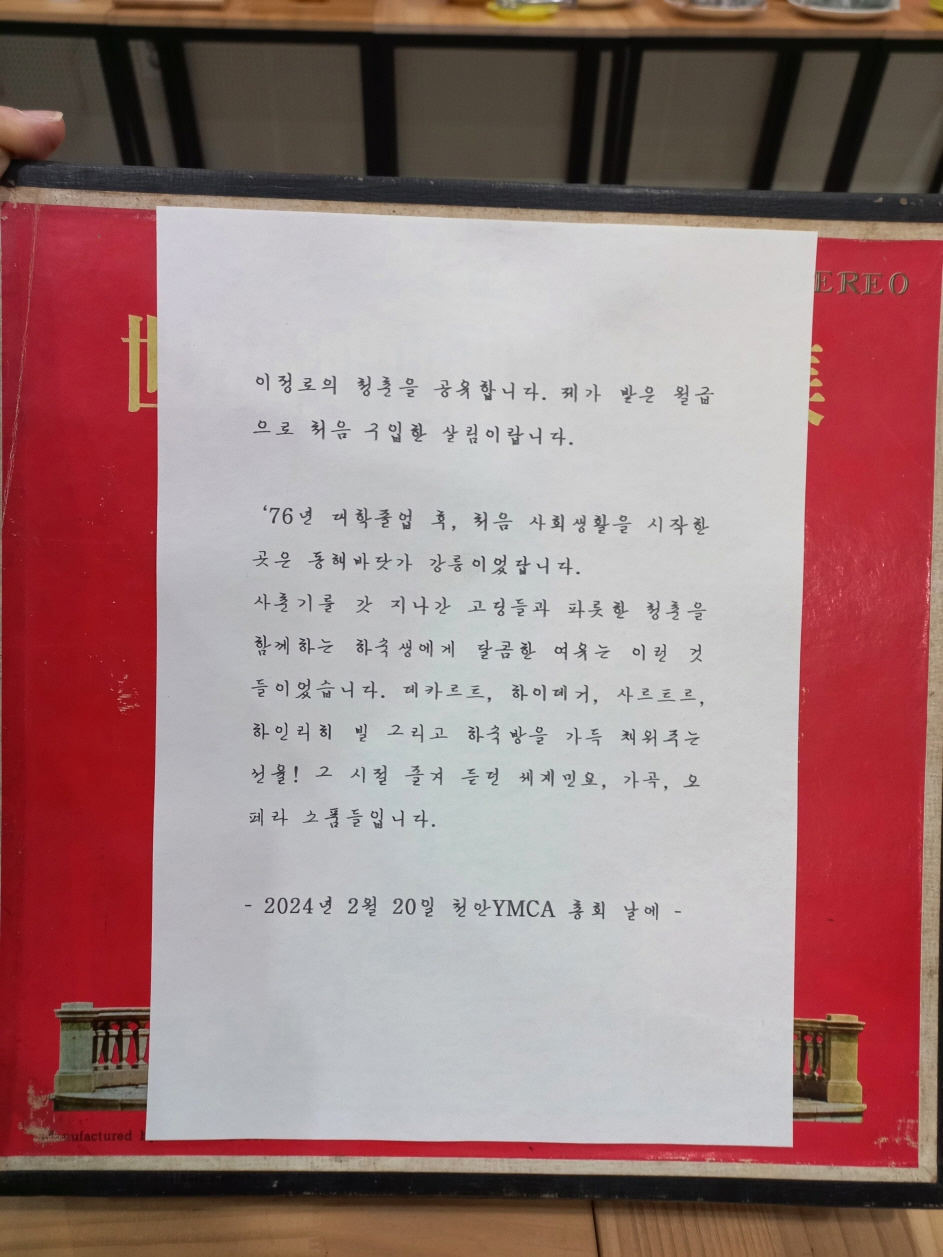 STEREO
世
集
이정로의 청춘을 공유합니다. 제가 받은 월급
으로 처음 구입한 살림이랍니다.
‘76년 대학졸업 후, 처음 사회생활을 시작한
곳은 동해바닷가 강릉이었답니다.
사춘기를 갓 지나간 고딩들과 파릇한 청춘을
함께하는 하숙생에게 달콤한 여유는 이런 것
들이었습니다. 데카르트, 하이데거, 사르트르,
하인리히 뵐 그리고 하숙방을 가득 채워주는
선율! 그 시절 즐겨 듣던 세계민요, 가곡, 오
페라 소품들입니다.
- 2024년 2월 20일 천안YMCA 총회 날에 -
Manufactured